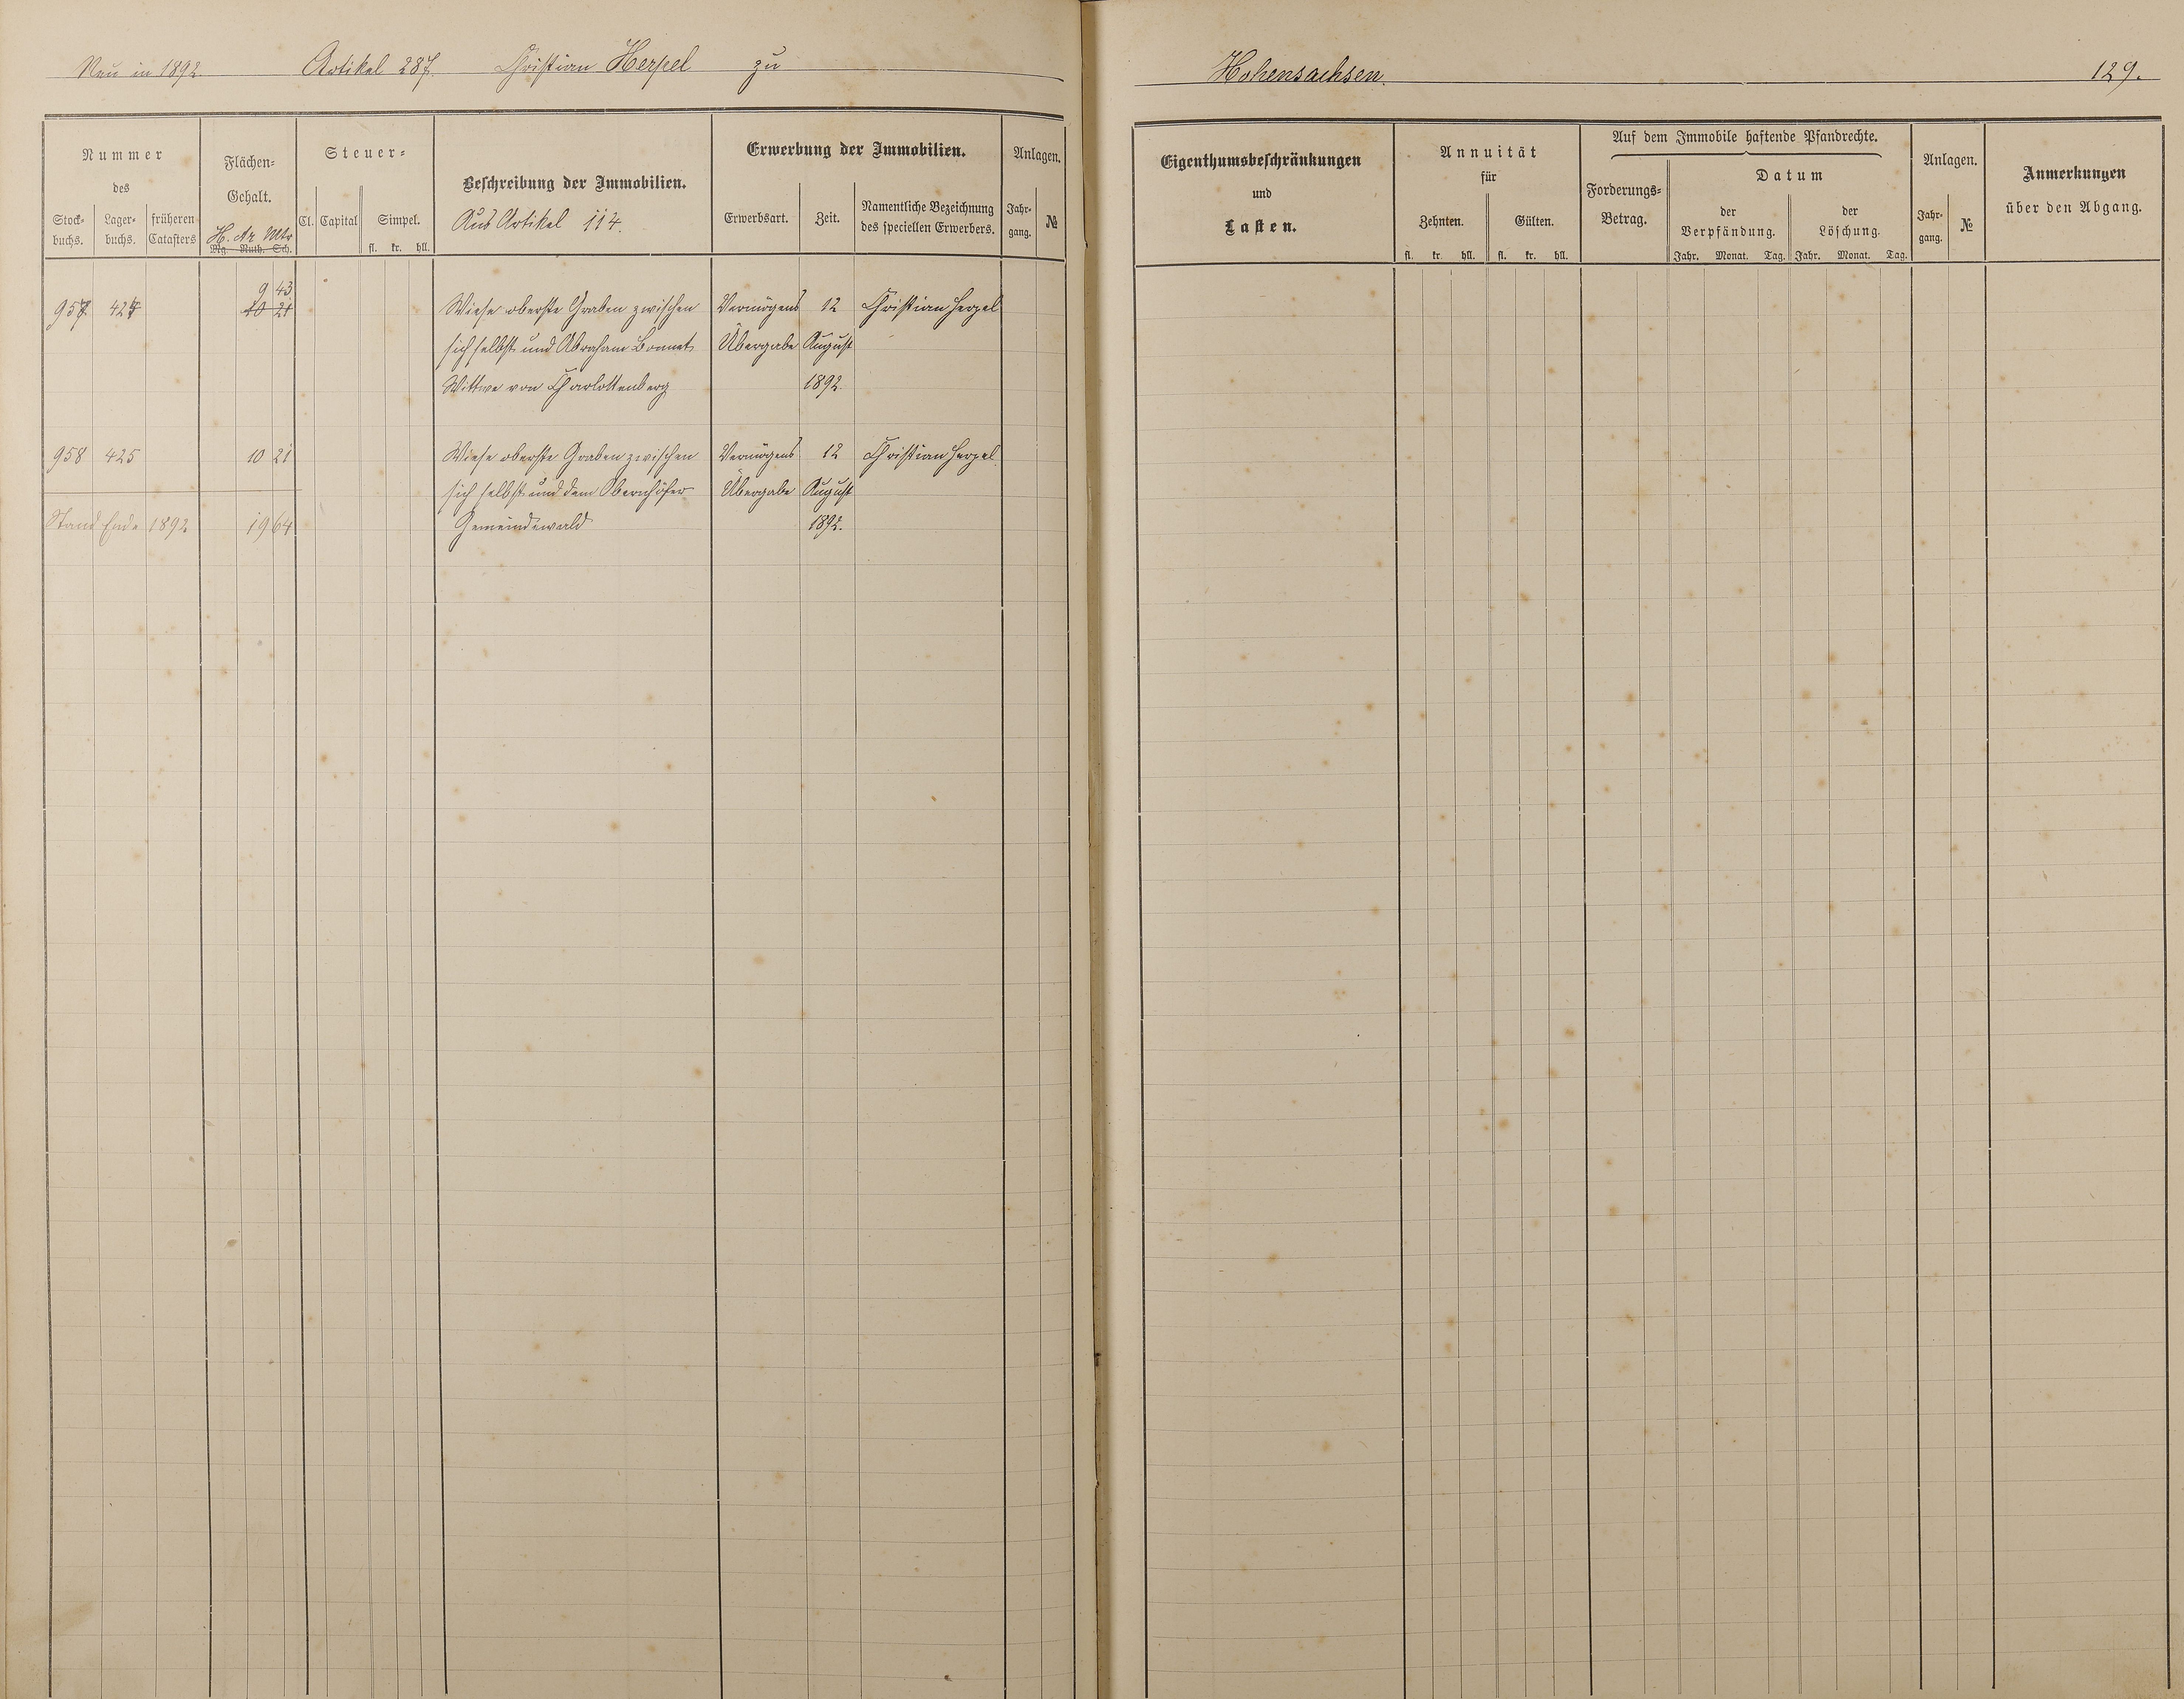 Neu in 1892. Artikel 287. Christian Herpel zu Hohensachsen. 129.
Nummer
des
Stock-
buchs.
Lager-
buchs.
früheren
Catasters
Flächen-
Gehalt.
H. Ar Mtr
Mg. Ruth. Sch.
Steuer-
Cl. Capital Simpel.
fl. kr. hll.
Beschreibung der Immobilien.
Aus Artikel 114.
Erwerbung der Immobilien.
Erwerbsart. Zeit.
Namentliche Bezeichnung
des speciellen Erwerbers.
Anlagen.
Jahr-
gang.
№
Eigenthumsbeschränkungen
und
Lasten.
Annuität
für
Zehnten. Gülten.
fl. kr. hll. fl. kr. hll.
Auf dem Immobile haftende Pfandrechte.
Forderungs-
Betrag.
Datum
der
Verpfändung.
der
Löschung.
Jahr. Monat. Tag. Jahr. Monat. Tag.
Anlagen.
Jahr-
gang.
№
Anmerkungen
über den Abgang.
9 43
957 424 10 21 Wiese oberste Graben zwischen Vermögens 12 Christian Herpel
sich selbst und Abraham Bonnet Übergabe August
Wittwe von Charlottenberg 1892.
958 425 10 21 Wiese oberste Graben zwischen Vermögens 12 Christian Herpel
sich selbst und dem Obernhöfer Übergabe August
Stand Ende 1892 19 64 Gemeindewald 1892.